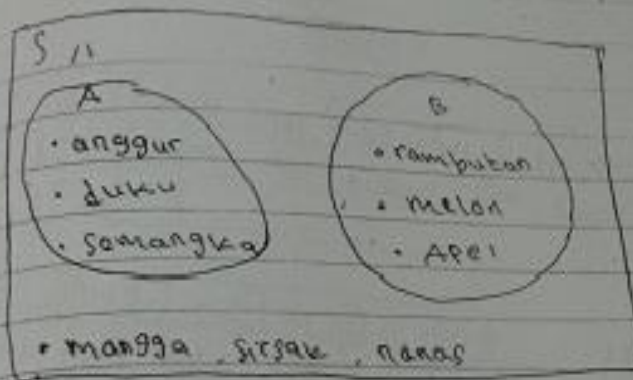 S
A
• anggur
• duku
• semangka
B
• rambutan
• melon
• Apel
• mangga, sirsak, nanas